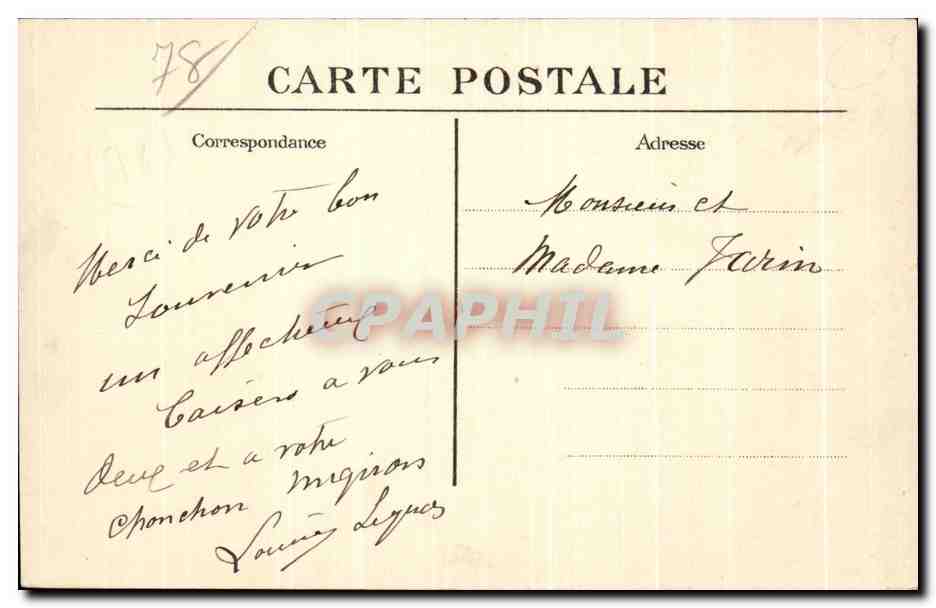 78
CARTE POSTALE
Correspondance
Adresse
Merci de votre bon
Souvenir
un affectueux
baisers a vous
deux et a votre
chonchon mignon
Louise
Monsieur et
Madame Jarin
CPAPHIL